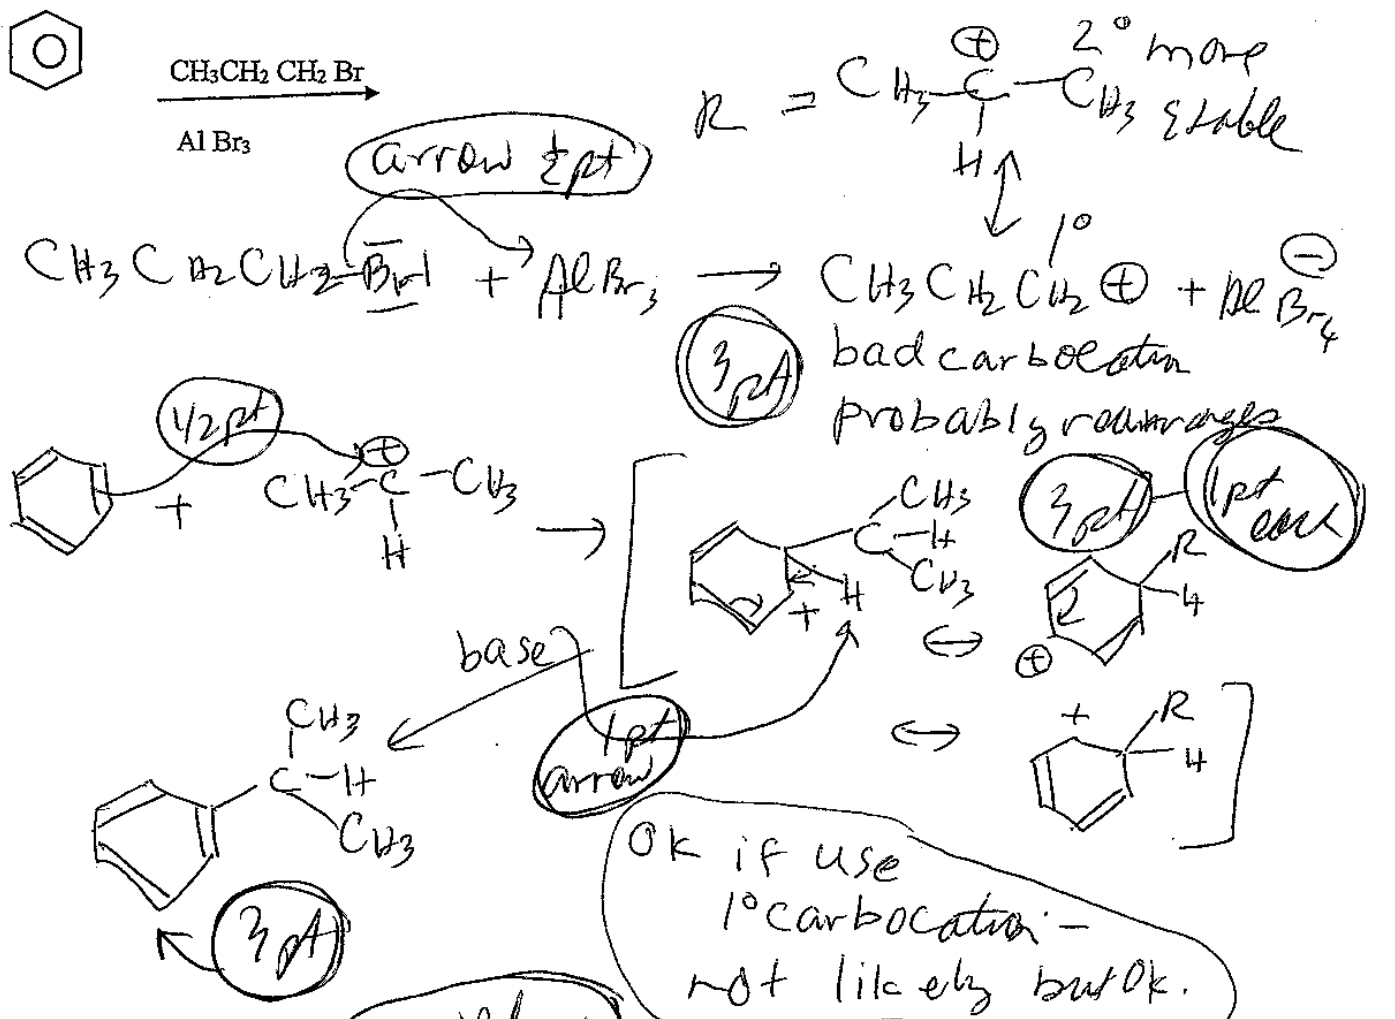 CH3CH2 CH2 Br
Al Br3
arrow ½pt
R = CH3-C-CH3 2° more
⊕
H
stable
CH3CH2CH2-Br + AlBr3 → CH3CH2CH2 ⊕ + AlBr4 ⊖
1°
3pt
bad carbocation
probably rearranges
1/2pt
+ CH3-C-CH3 →
⊕
H
CH3
C-H
CH3
H
+
3pt - 1pt each
R
H
⊕
↔
base
1pt
arrow
↔
+
R
H
CH3
C-H
CH3
3pt
Ok if use
1° carbocation -
not likely but Ok.